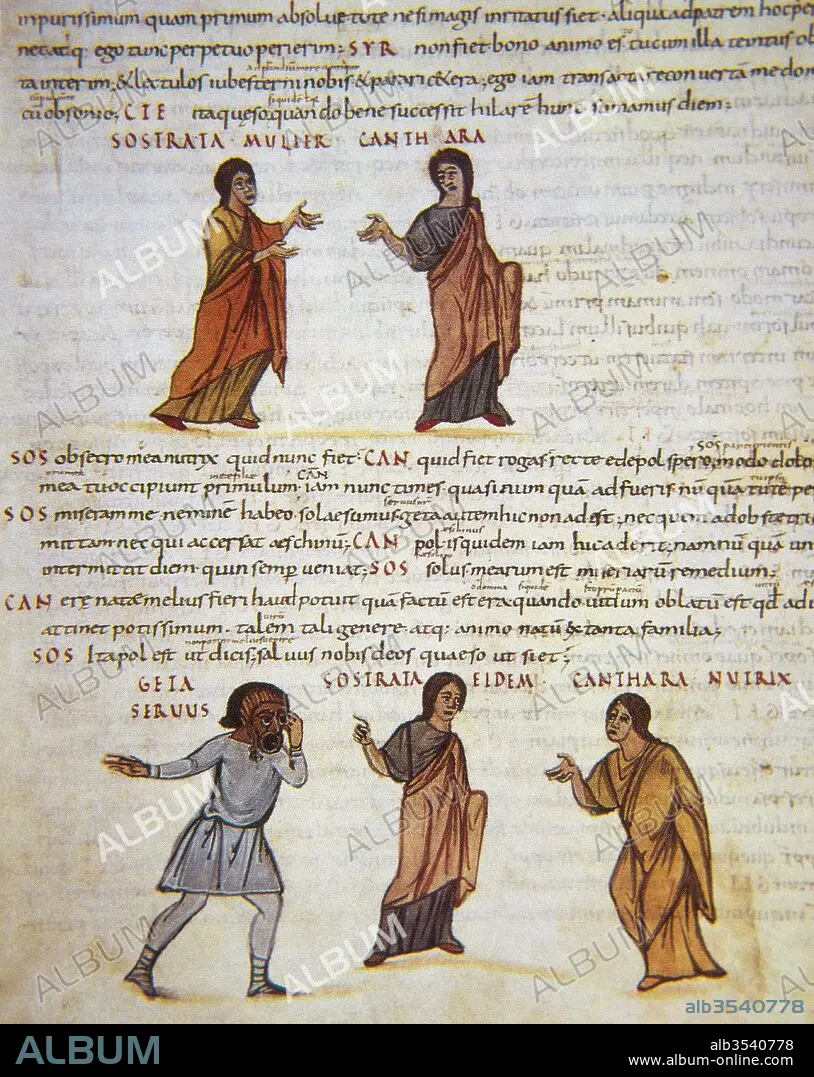 inpurissimum quam primum absoluetote nesimagis inritatus siet · aliqua ad patrem hoc per
atq; ego tunc perpetuo perierim; SYR non fiet bono animo es tu cum illa te intus ob
ta interim; & lectulos iube sterni nobis & parari cetera; ego iam transacta re conuertā me dom
cū obsonio; CTE ita quęso quando bene successit hilarē hunc sumamus diem;
SOSTRATA MULIER CANTHARA
SOS obsecro mea nutrix quid nunc fiet · CAN quid fiet rogas recte edepol spero modo dolo
mea tu occipiunt primulum · iam nunc times · quasi num quā adfueris nū quā tute pe
SOS miseram me neminē habeo · solae sumus · geta autem hic non adest · nec quem ad obstetri
mittam nec qui accersat aeschinū; CAN pol is quidem iam hic aderit; nam nū quā un
intermittit diem · quin semp ueniat; SOS solus mearum est miseriarū remedium;
CAN e re nata melius fieri haud potuit quā factū est era quando uitium oblatū est qđ adi
attinet potissimum · talem tali genere · atq; animo natū & tanta familia;
SOS Ita pol est ut dicis; saluus nobis deos quaeso ut siet;
GETA SOSTRATA EIDEM CANTHARA NUTRIX
SERUUS
ALBUM
alb3540778
ALBUM
alb3540778
www.album-online.com